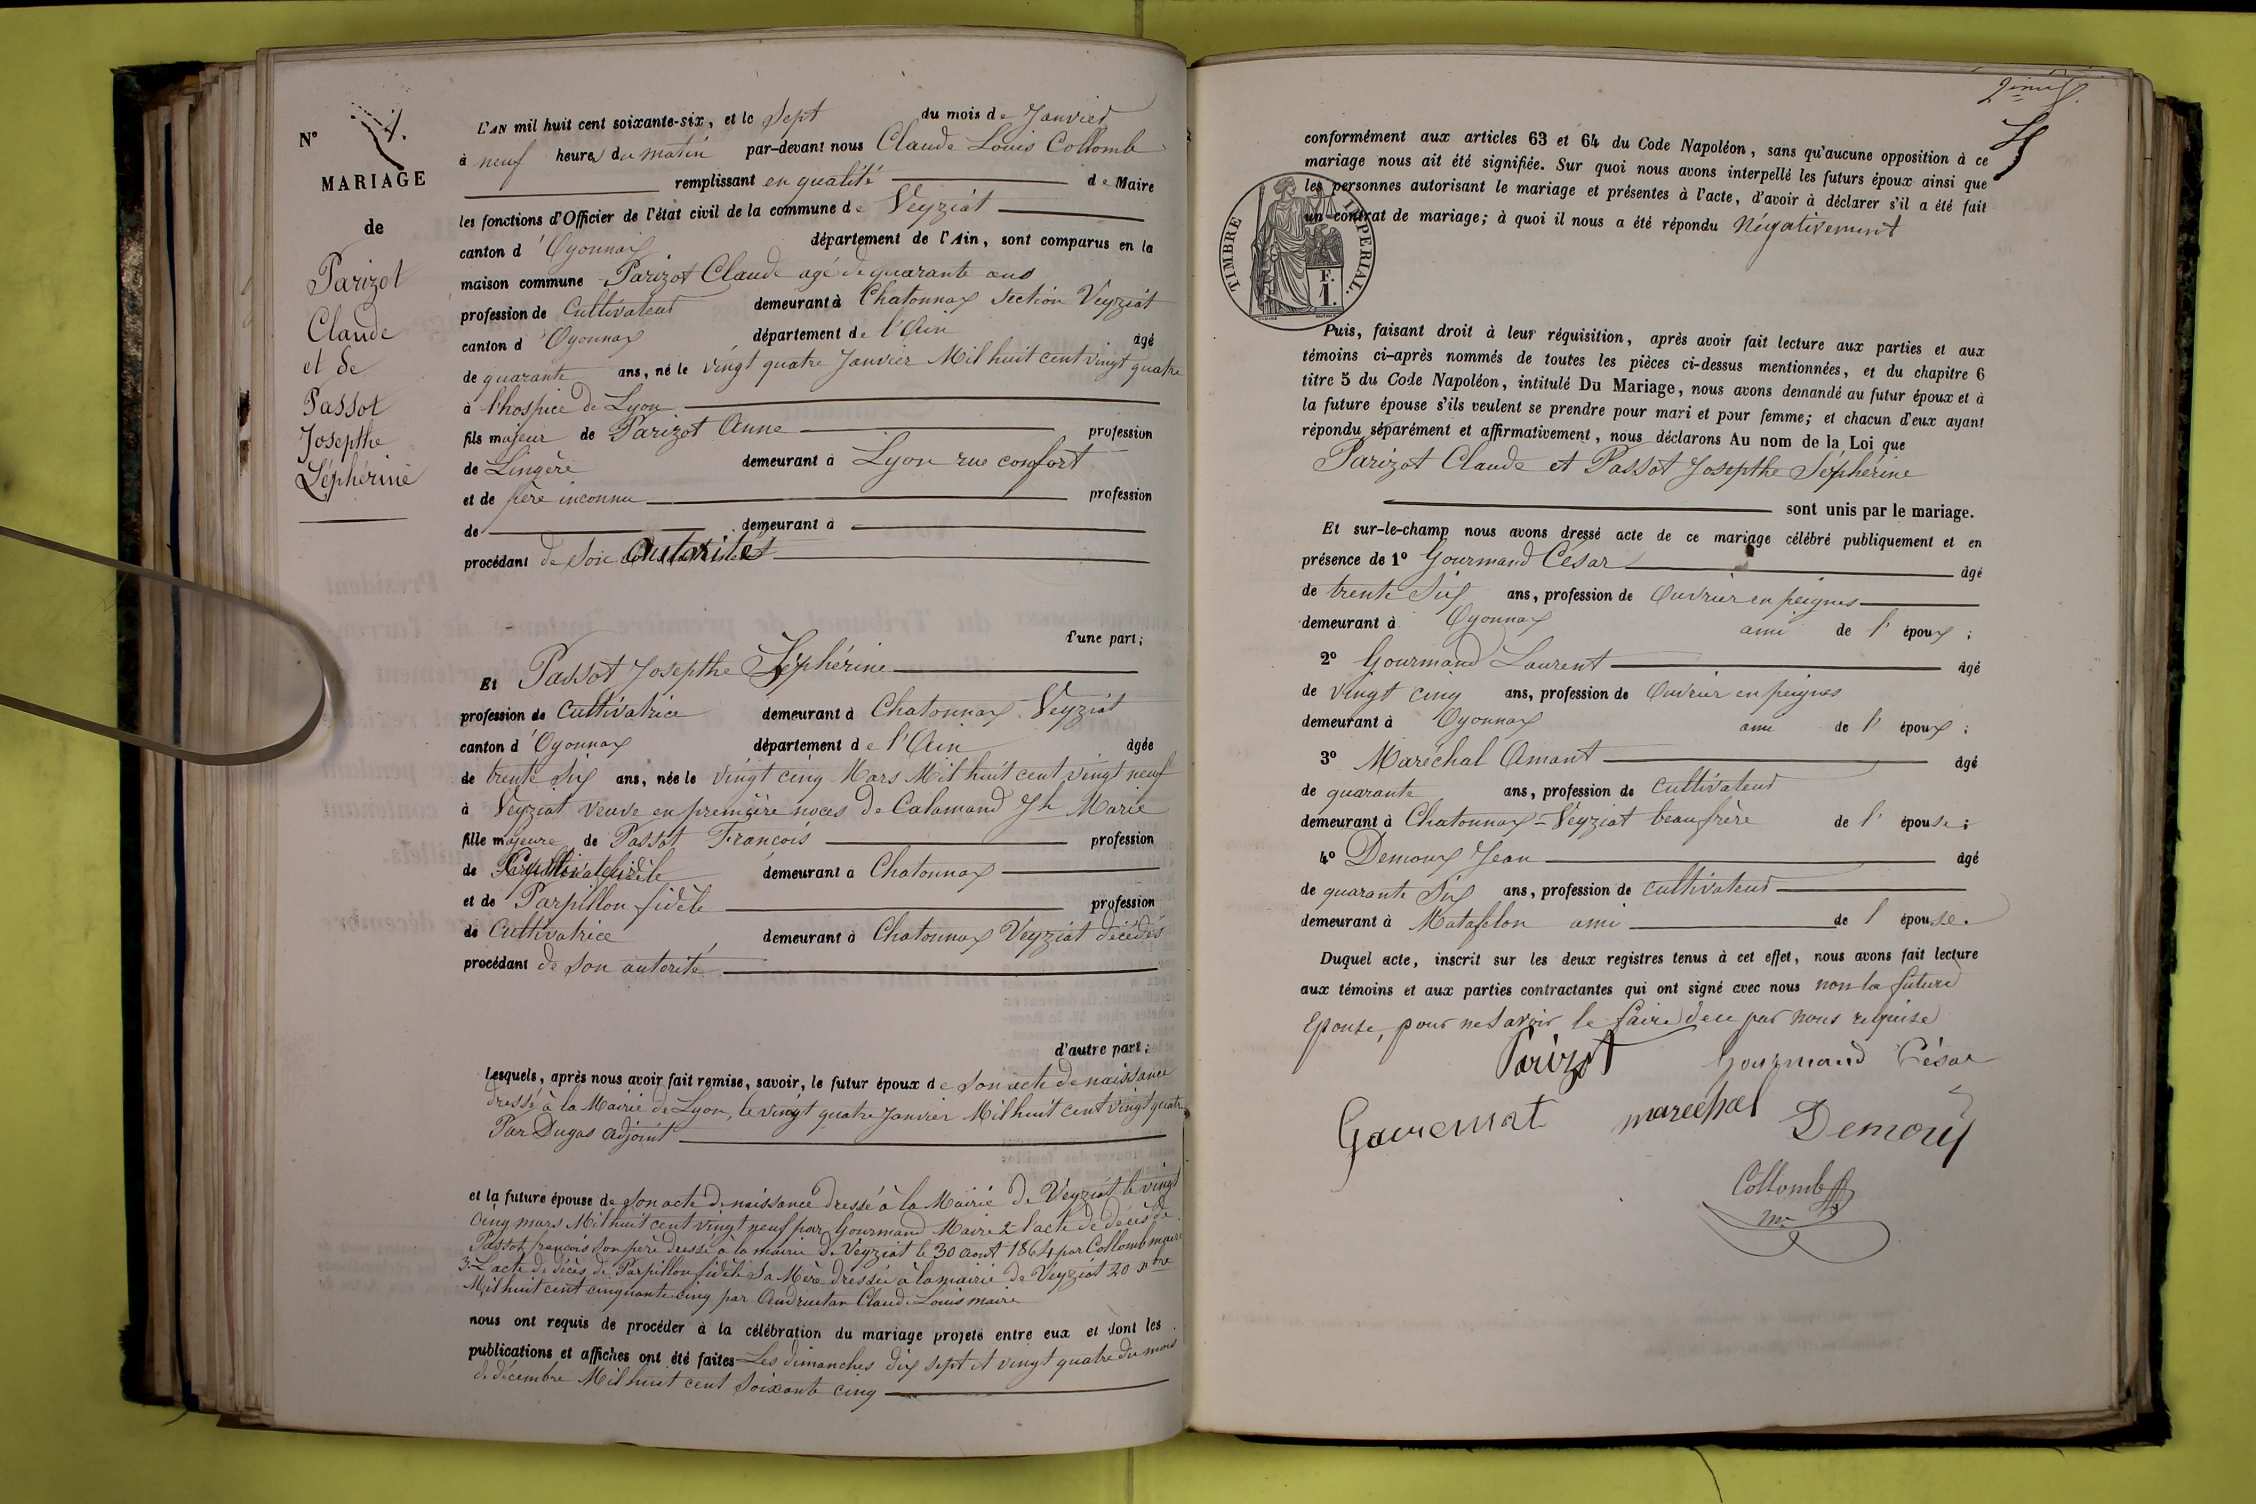 N° 1.
MARIAGE
de
Parizot
Claude
et de
Passot
Josepthe
Séphérine
L'AN mil huit cent soixante-six, et le Sept du mois de Janvier
à neuf heures du matin par-devant nous Claude Louis Collomb
remplissant en qualité de Maire
les fonctions d'Officier de l'état civil de la commune de Veyziat
canton d'Oyonnax département de l'Ain, sont comparus en la
maison commune Parizot Claude agé de quarante ans
profession de Cultivateur demeurant à Chatonnax section Veyziat
canton d'Oyonnax département de l'Ain âgé
de quarante ans, né le vingt quatre Janvier Mil huit cent vingt quatre
à l'hospice de Lyon
fils majeur de Parizot Anne profession
de Lingère demeurant à Lyon rue confort
et de père inconnu profession
de demeurant à
procédant de son autorité
d'une part;
Et Passot Josepthe Séphérine
profession de Cultivatrice demeurant à Chatonnax Veyziat
canton d'Oyonnax département de l'Ain âgée
de trente six ans, née le vingt cinq Mars Mil huit cent vingt neuf
à Veyziat veuve en première noces de Calamand Jh Marie
fille majeure de Passot François profession
de demeurant à Chatonnax
et de Parpillon fidèle profession
de Cultivatrice demeurant à Chatonnax Veyziat décédés
procédant de son autorité
d'autre part;
Lesquels, après nous avoir fait remise, savoir, le futur époux de son acte de naissance
dressé à la Mairie de Lyon, le vingt quatre Janvier Mil huit cent vingt quatre
Par Dugas adjoint
et la future épouse de son acte de naissance dressé à la Mairie de Veyziat le vingt
cinq mars Mil huit cent vingt neuf par Gourmand Maire 2 l'acte de décès de
Passot françois son père dressé à la mairie de Veyziat le 30 aout 1864 par Collomb maire
3. L'acte de décès de Parpillon fidèle sa Mère dressée à la mairie de Veyziat 20 bre
Mil huit cent cinquante cinq par Claude Louis maire
nous ont requis de procéder à la célébration du mariage projeté entre eux et dont les
publications et affiches ont été faites Les dimanches dix sept et vingt quatre du mois
de décembre Mil huit cent soixante cinq
conformément aux articles 63 et 64 du Code Napoléon, sans qu'aucune opposition à ce
mariage nous ait été signifiée. Sur quoi nous avons interpellé les futurs époux ainsi que
les personnes autorisant le mariage et présentes à l'acte, d'avoir à déclarer s'il a été fait
un contrat de mariage; à quoi il nous a été répondu Négativement
TIMBRE IMPERIAL.
F.
1.
Puis, faisant droit à leur réquisition, après avoir fait lecture aux parties et aux
témoins ci-après nommés de toutes les pièces ci-dessus mentionnées, et du chapitre 6
titre 5 du Code Napoléon, intitulé Du Mariage, nous avons demandé au futur époux et à
la future épouse s'ils veulent se prendre pour mari et pour femme; et chacun d'eux ayant
répondu séparément et affirmativement, nous déclarons Au nom de la Loi que
Parizot Claude et Passot Josepthe Séphérine
sont unis par le mariage.
Et sur-le-champ nous avons dressé acte de ce mariage célébré publiquement et en
présence de 1° Gourmand César âgé
de trente Six ans, profession de Ouvrier en peignes
demeurant à Oyonnax ami de l' époux;
2° Gourmand Laurent âgé
de vingt cinq ans, profession de Ouvrier en peignes
demeurant à Oyonnax ami de l' époux;
3° Maréchal Amant âgé
de quarante ans, profession de cultivateur
demeurant à Chatonnax-Veyziat beaufrère de l' épouse;
4° Demoux Jean âgé
de quarante Six ans, profession de cultivateur
demeurant à Matafelon ami de l épouse.
Duquel acte, inscrit sur les deux registres tenus à cet effet, nous avons fait lecture
aux témoins et aux parties contractantes qui ont signé avec nous non la future
Epouse, pour ne savoir le faire de ce par nous requise
Parizot Gourmand César
maréchal
Demoux
Collomb